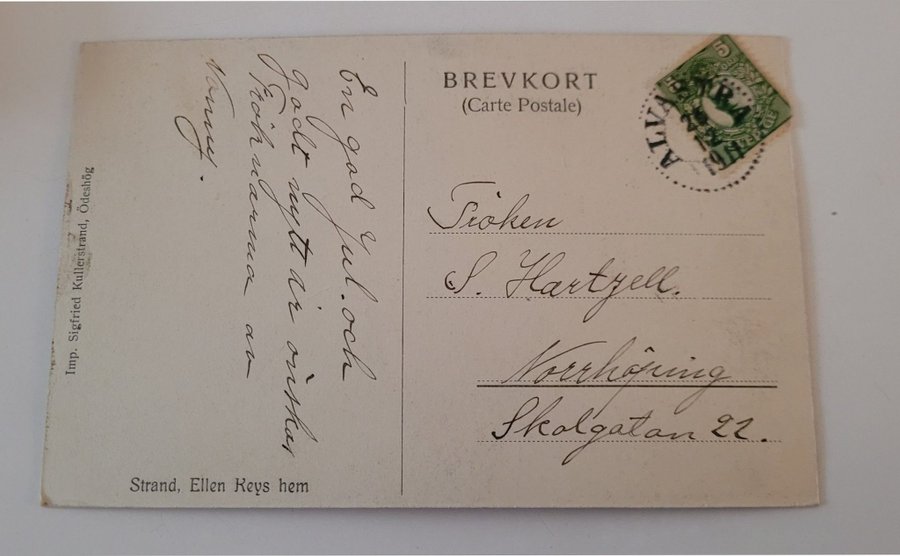 BREVKORT
(Carte Postale)
5
ALVASTRA
12
1911
Fröken
S. Hartzell.
Norrköping
Skolgatan 22.
En god Jul. och
godt nytt år önskar
Fröknarna av
Nanny.
Strand, Ellen Keys hem
Imp. Sigfried Kullerstrand, Ödeshög